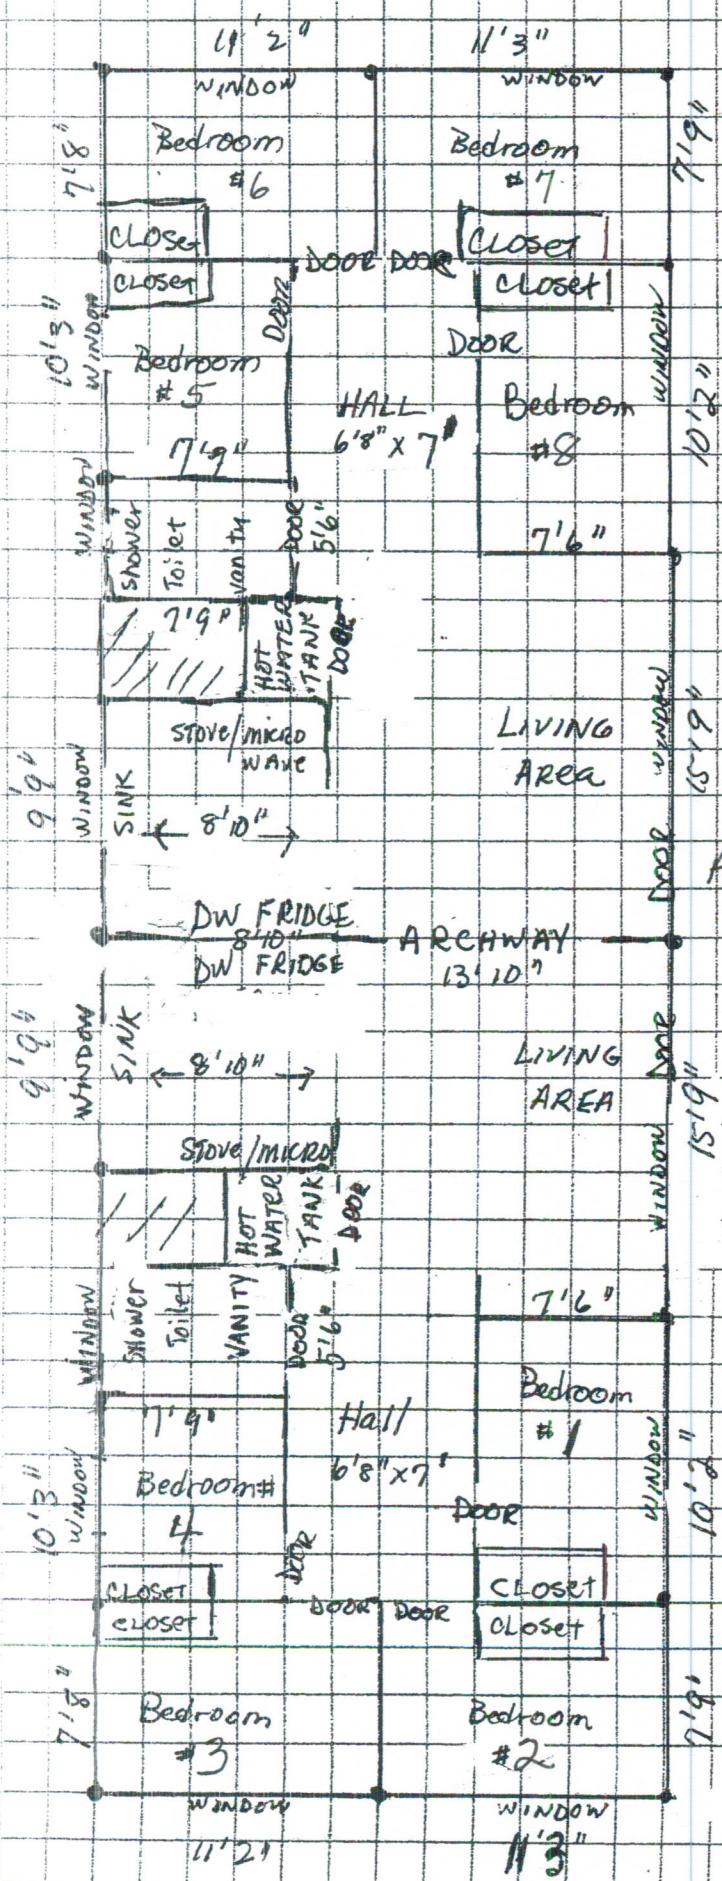 11'2" 11'3"
WINDOW WINDOW
Bedroom Bedroom
#6 #7
7'8" 7'9"
CLOSET CLOSET
DOOR DOOR
CLOSET CLOSET
DOOR
DOOR
10'3"
WINDOW
WINDOW
10'2"
Bedroom
#5
HALL
6'8" x 7'
Bedroom
#8
7'9"
WINDOW
Shower
Toilet
Vanity
DOOR
5'6"
7'6"
7'9"
HOT
WATER
TANK
DOOR
STOVE/MICRO
WAVE
LIVING
AREA
WINDOW
15'9"
9'9"
WINDOW
SINK
8'10"
DOOR
DW FRIDGE
8'10"
ARCHWAY
DW FRIDGE
13'10"
9'9"
WINDOW
SINK
8'10"
LIVING
AREA
DOOR
15'9"
WINDOW
STOVE/MICRO
HOT
WATER
TANK
DOOR
WINDOW
Shower
Toilet
VANITY
DOOR
5'6"
7'6"
Bedroom
#1
7'9"
Hall
6'8" x 7'
WINDOW
10'2"
10'3"
WINDOW
Bedroom#
4
DOOR
DOOR
CLOSET CLOSET
DOOR DOOR
CLOSET CLOSET
7'8" 7'9"
Bedroom Bedroom
#3 #2
WINDOW WINDOW
11'2" 11'3"